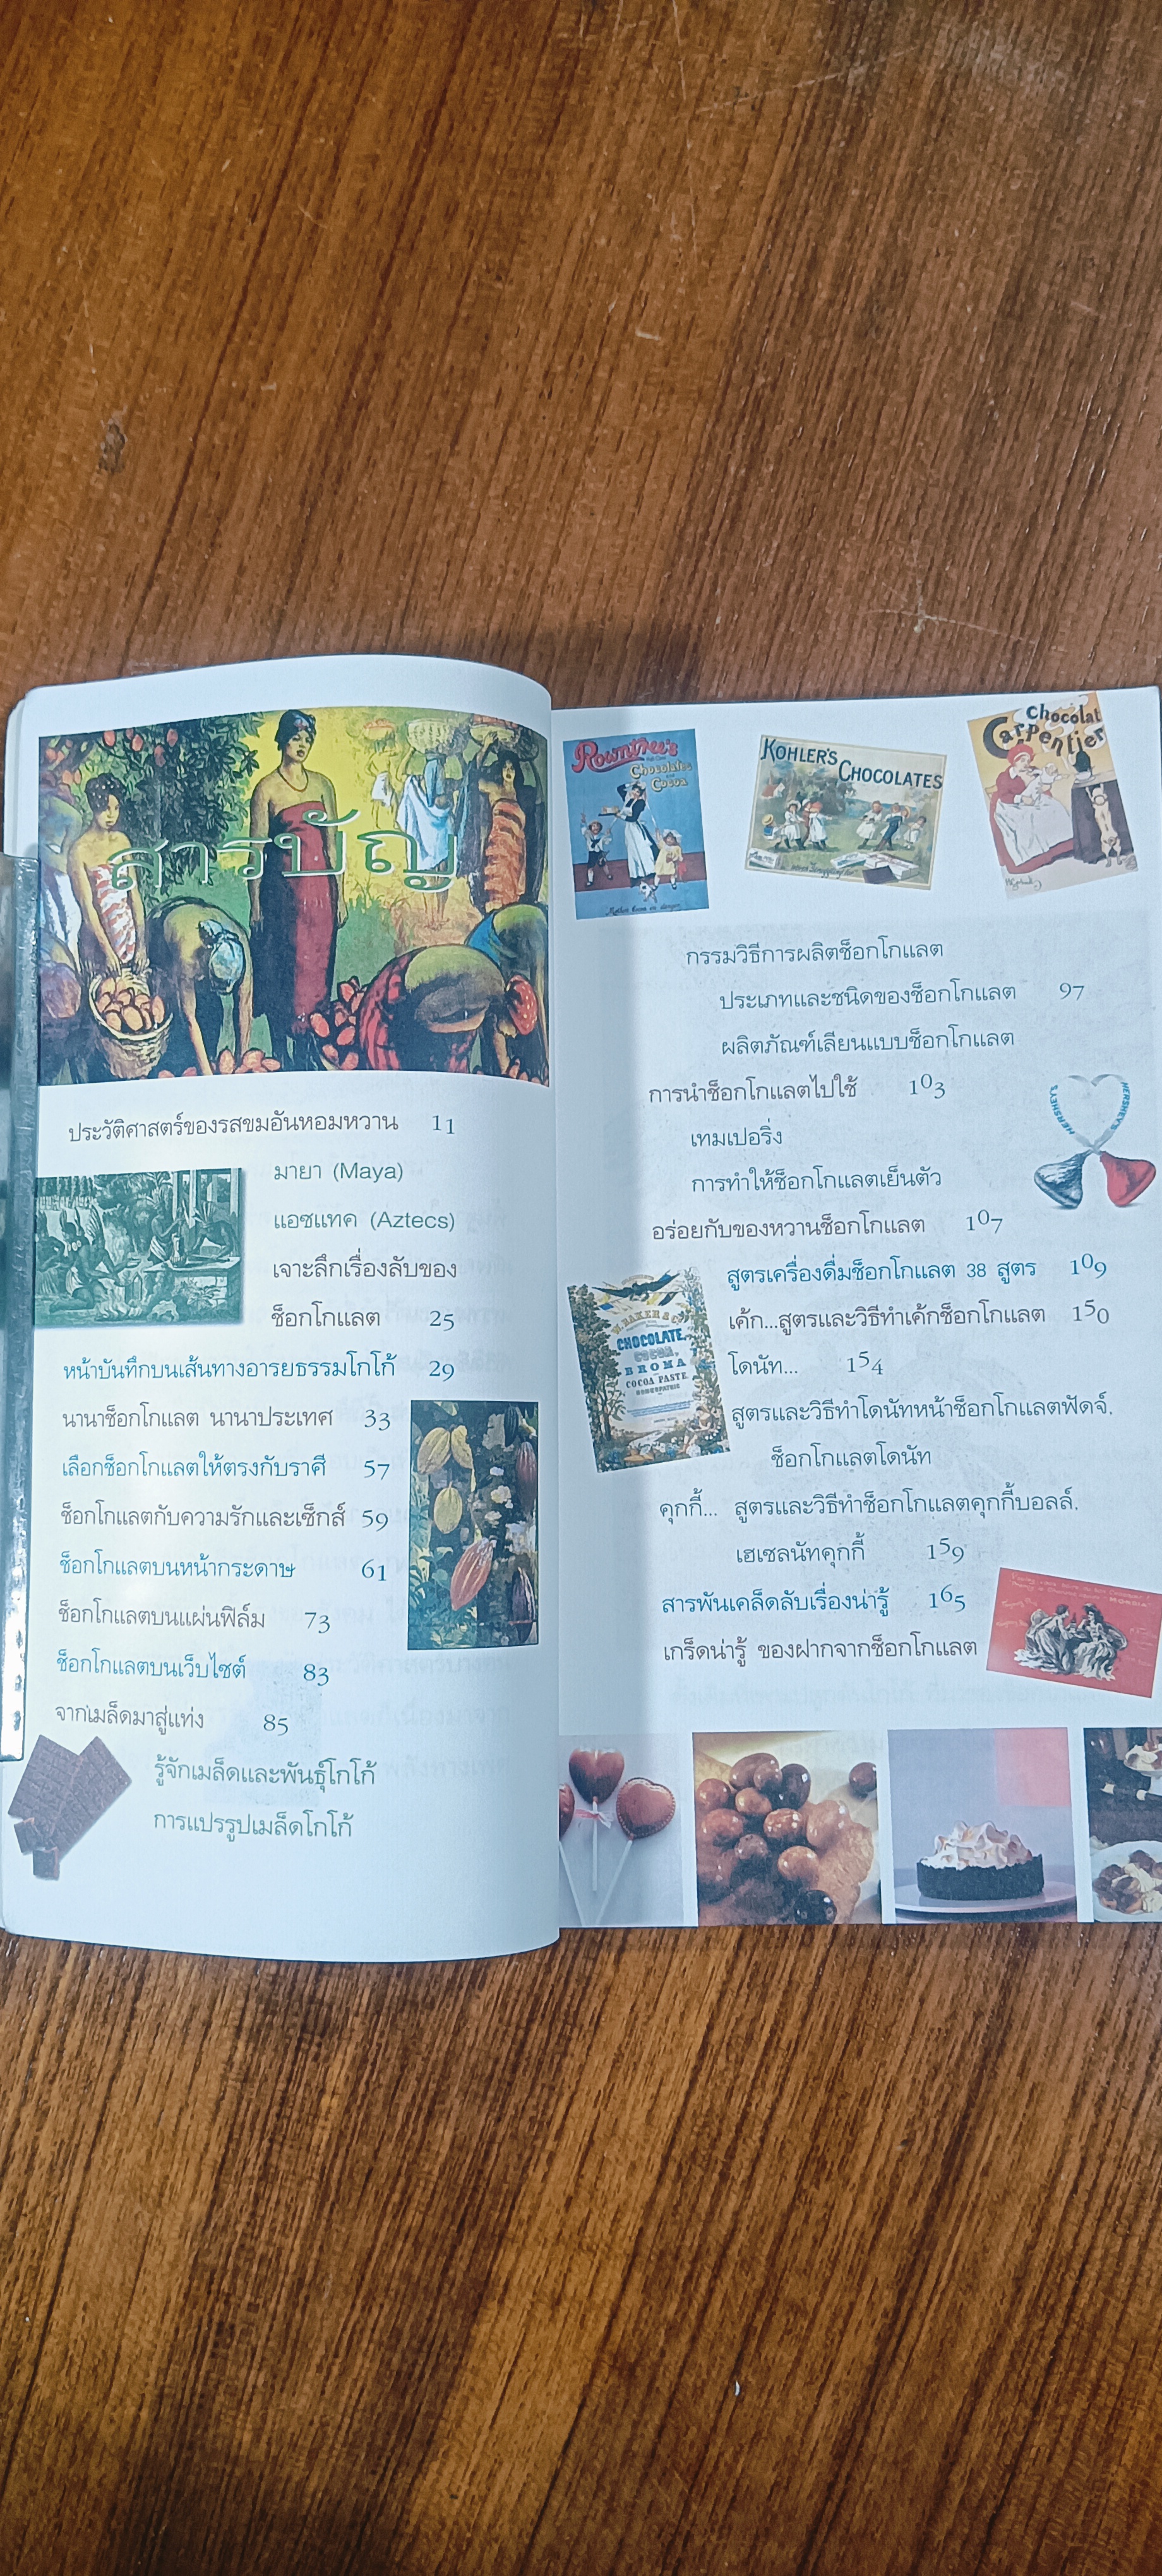 สารบัญ
ประวัติศาสตร์ของรสขมอันหอมหวาน 11
มายา (Maya)
แอซแทค (Aztecs)
เจาะลึกเรื่องลับของ
ช็อกโกแลต 25
หน้าบันทึกบนเส้นทางอารยธรรมโกโก้ 29
นานาช็อกโกแลต นานาประเทศ 33
เลือกช็อกโกแลตให้ตรงกับราศี 57
ช็อกโกแลตกับความรักและเซ็กส์ 59
ช็อกโกแลตบนหน้ากระดาษ 61
ช็อกโกแลตบนแผ่นฟิล์ม 73
ช็อกโกแลตบนเว็บไซต์ 83
จากเมล็ดมาสู่แท่ง 85
รู้จักเมล็ดและพันธุ์โกโก้
การแปรรูปเมล็ดโกโก้
Rowntree's
Chocolates
Cocoa
KOHLER'S
CHOCOLATES
Chocolat
Carpentier
กรรมวิธีการผลิตช็อกโกแลต
ประเภทและชนิดของช็อกโกแลต 97
ผลิตภัณฑ์เลียนแบบช็อกโกแลต
การนำช็อกโกแลตไปใช้ 103
เทมเปอริ่ง
การทำให้ช็อกโกแลตเย็นตัว
HERSHEY'S
HERSHEY'S
อร่อยกับของหวานช็อกโกแลต 107
สูตรเครื่องดื่มช็อกโกแลต 38 สูตร 109
เค้ก...สูตรและวิธีทำเค้กช็อกโกแลต 150
โดนัท... 154
สูตรและวิธีทำโดนัทหน้าช็อกโกแลตฟัดจ์,
ช็อกโกแลตโดนัท
คุกกี้... สูตรและวิธีทำช็อกโกแลตคุกกี้บอลล์,
เฮเซลนัทคุกกี้ 159
สารพันเคล็ดลับเรื่องน่ารู้ 165
เกร็ดน่ารู้ ของฝากจากช็อกโกแลต
W. BAKER & C
CHOCOLATE,
COCOA,
BROMA
COCOA PASTE